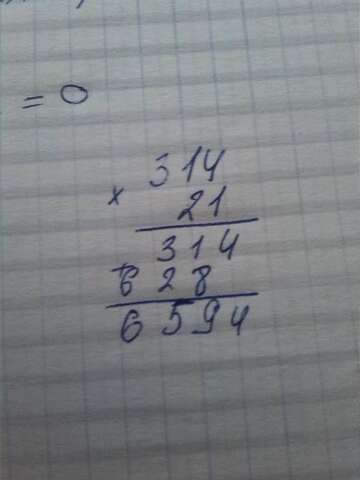 = 0
314
× 21
314
+ 628
6594